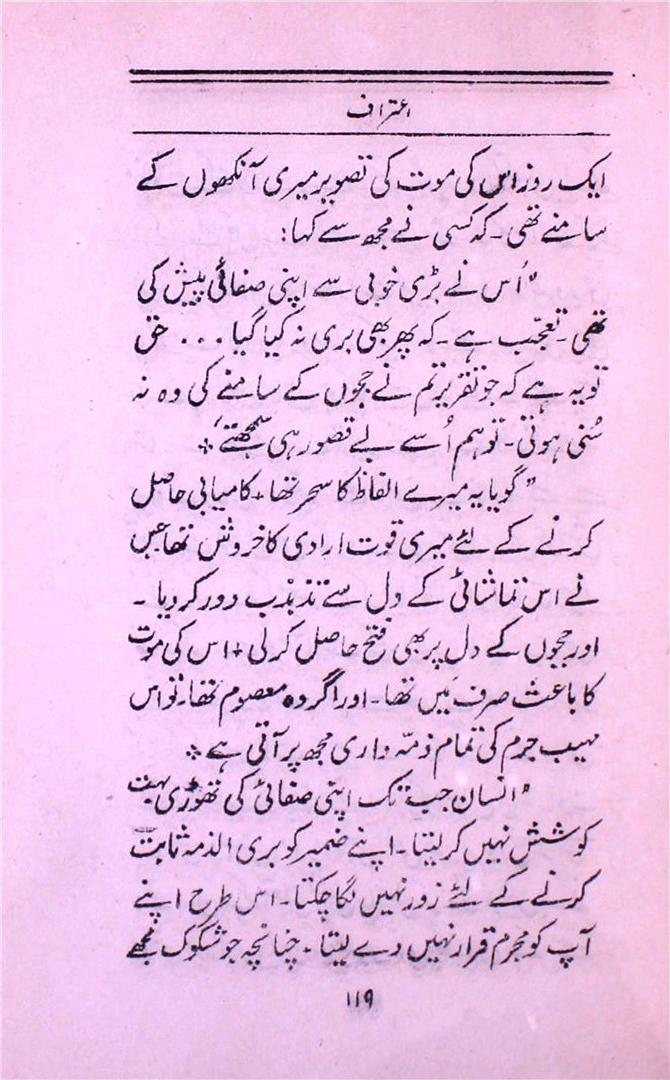 اعتراف
ایک روز اس کی موت کی تصویر میری آنکھوں کے
سامنے تھی۔ کہ کسی نے مجھ سے کہا:
"اُس نے بڑی خوبی سے اپنی صفائی پیش کی
تھی۔ تعجّب ہے۔ کہ پھر بھی بری نہ کیا گیا ... حق
تو یہ ہے کہ جو تقریر تم نے ججوں کے سامنے کی وہ نہ
سُنی ہوتی۔ تو ہم اُسے بے قصور ہی سمجھتے"*
"گویا یہ میرے الفاظ کا سحر تھا + کامیابی حاصل
کرنے کے لئے میری قوت ارادی کا خروش تھا جس
نے اس تماشائی کے دل سے تذبذب دور کر دیا۔
اور ججوں کے دل پر بھی فتح حاصل کر لی + اس کی موت
کا باعث صرف مَیں تھا۔ اور اگر وہ معصوم تھا۔ تو اس
مہیب جرم کی تمام ذمّہ داری مجھ پر آتی ہے *
"انسان جب تک اپنی صفائی کی تھوڑی بہت
کوشش نہیں کر لیتا۔ اپنے ضمیر کو بری الذمہ ثابت
کرنے کے لئے زور نہیں لگا چکتا۔ اس طرح اپنے
آپ کو مجرم قرار نہیں دے لیتا + چنانچہ جو شکوک مجھے
۱۱۹